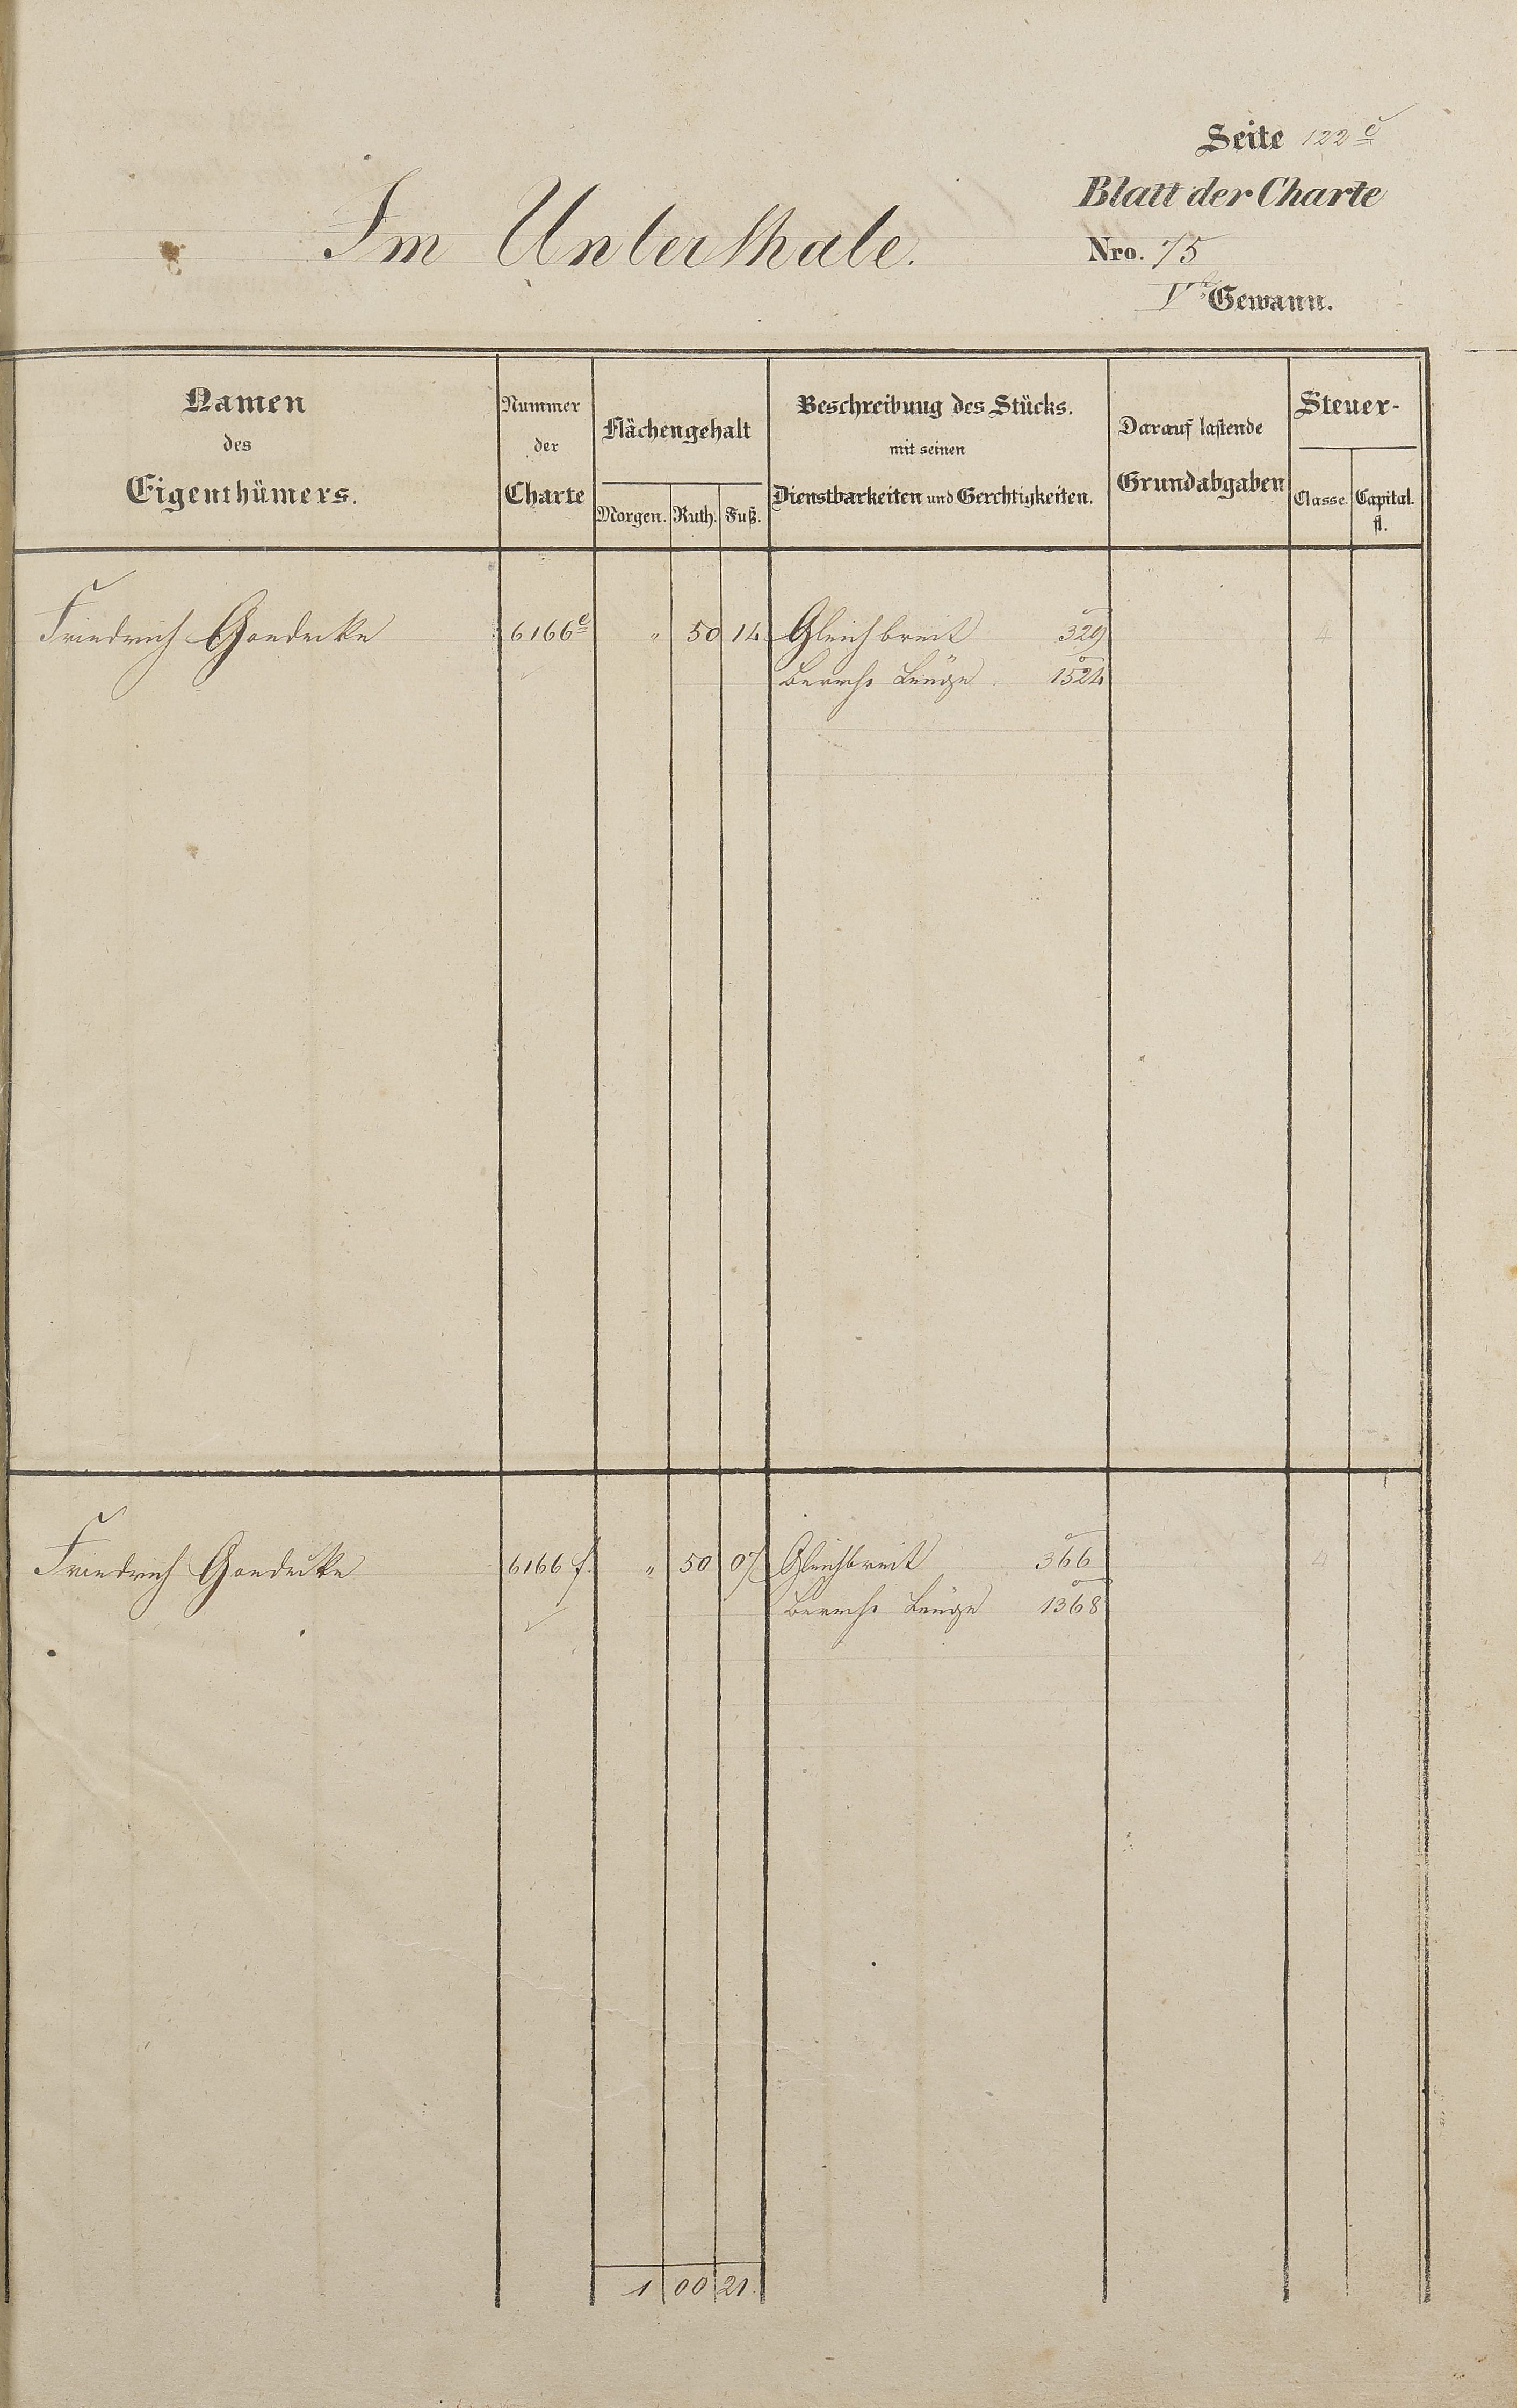 Seite 122 e
Blatt der Charte
Im Unterthale.
Nro. 75
Vte Gewann.
Namen des Eigenthümers.
Nummer der Charte
Flächengehalt
Morgen. Ruth. Fuß.
Beschreibung des Stücks. mit seinen Dienstbarkeiten und Gerechtigkeiten.
Darauf lastende Grundabgaben
Steuer-
Classe. Capital. fl.
Friedrich Goedecke 6166 e " 50 14 Gleichbreit 329 4
Berechn Länge 1524
Friedrich Goedecke 6166 f. " 50 07 Gleichbreit 366 4
Berechn Länge 1368
1 00 21.